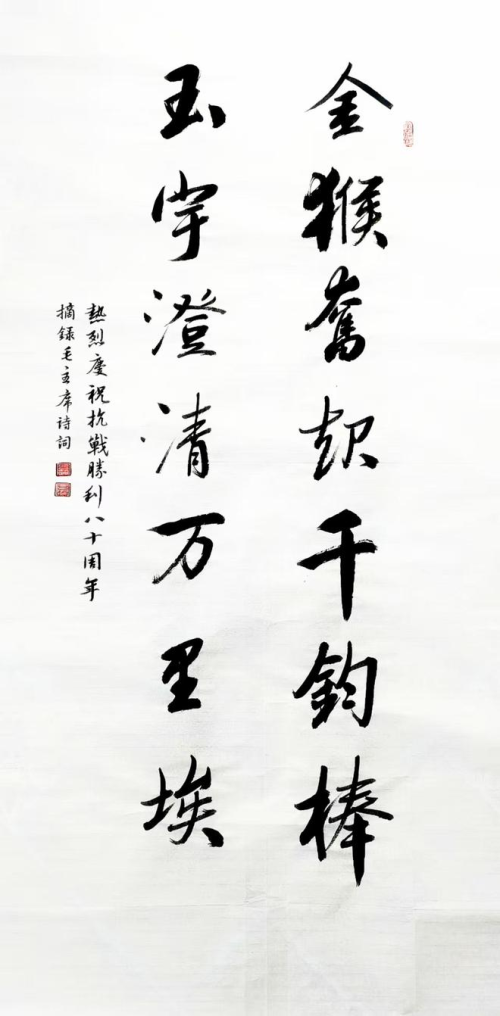 金猴奮起千鈞棒
玉宇澄清万里埃
熱烈慶祝抗戰勝利八十周年
摘録毛主席诗詞